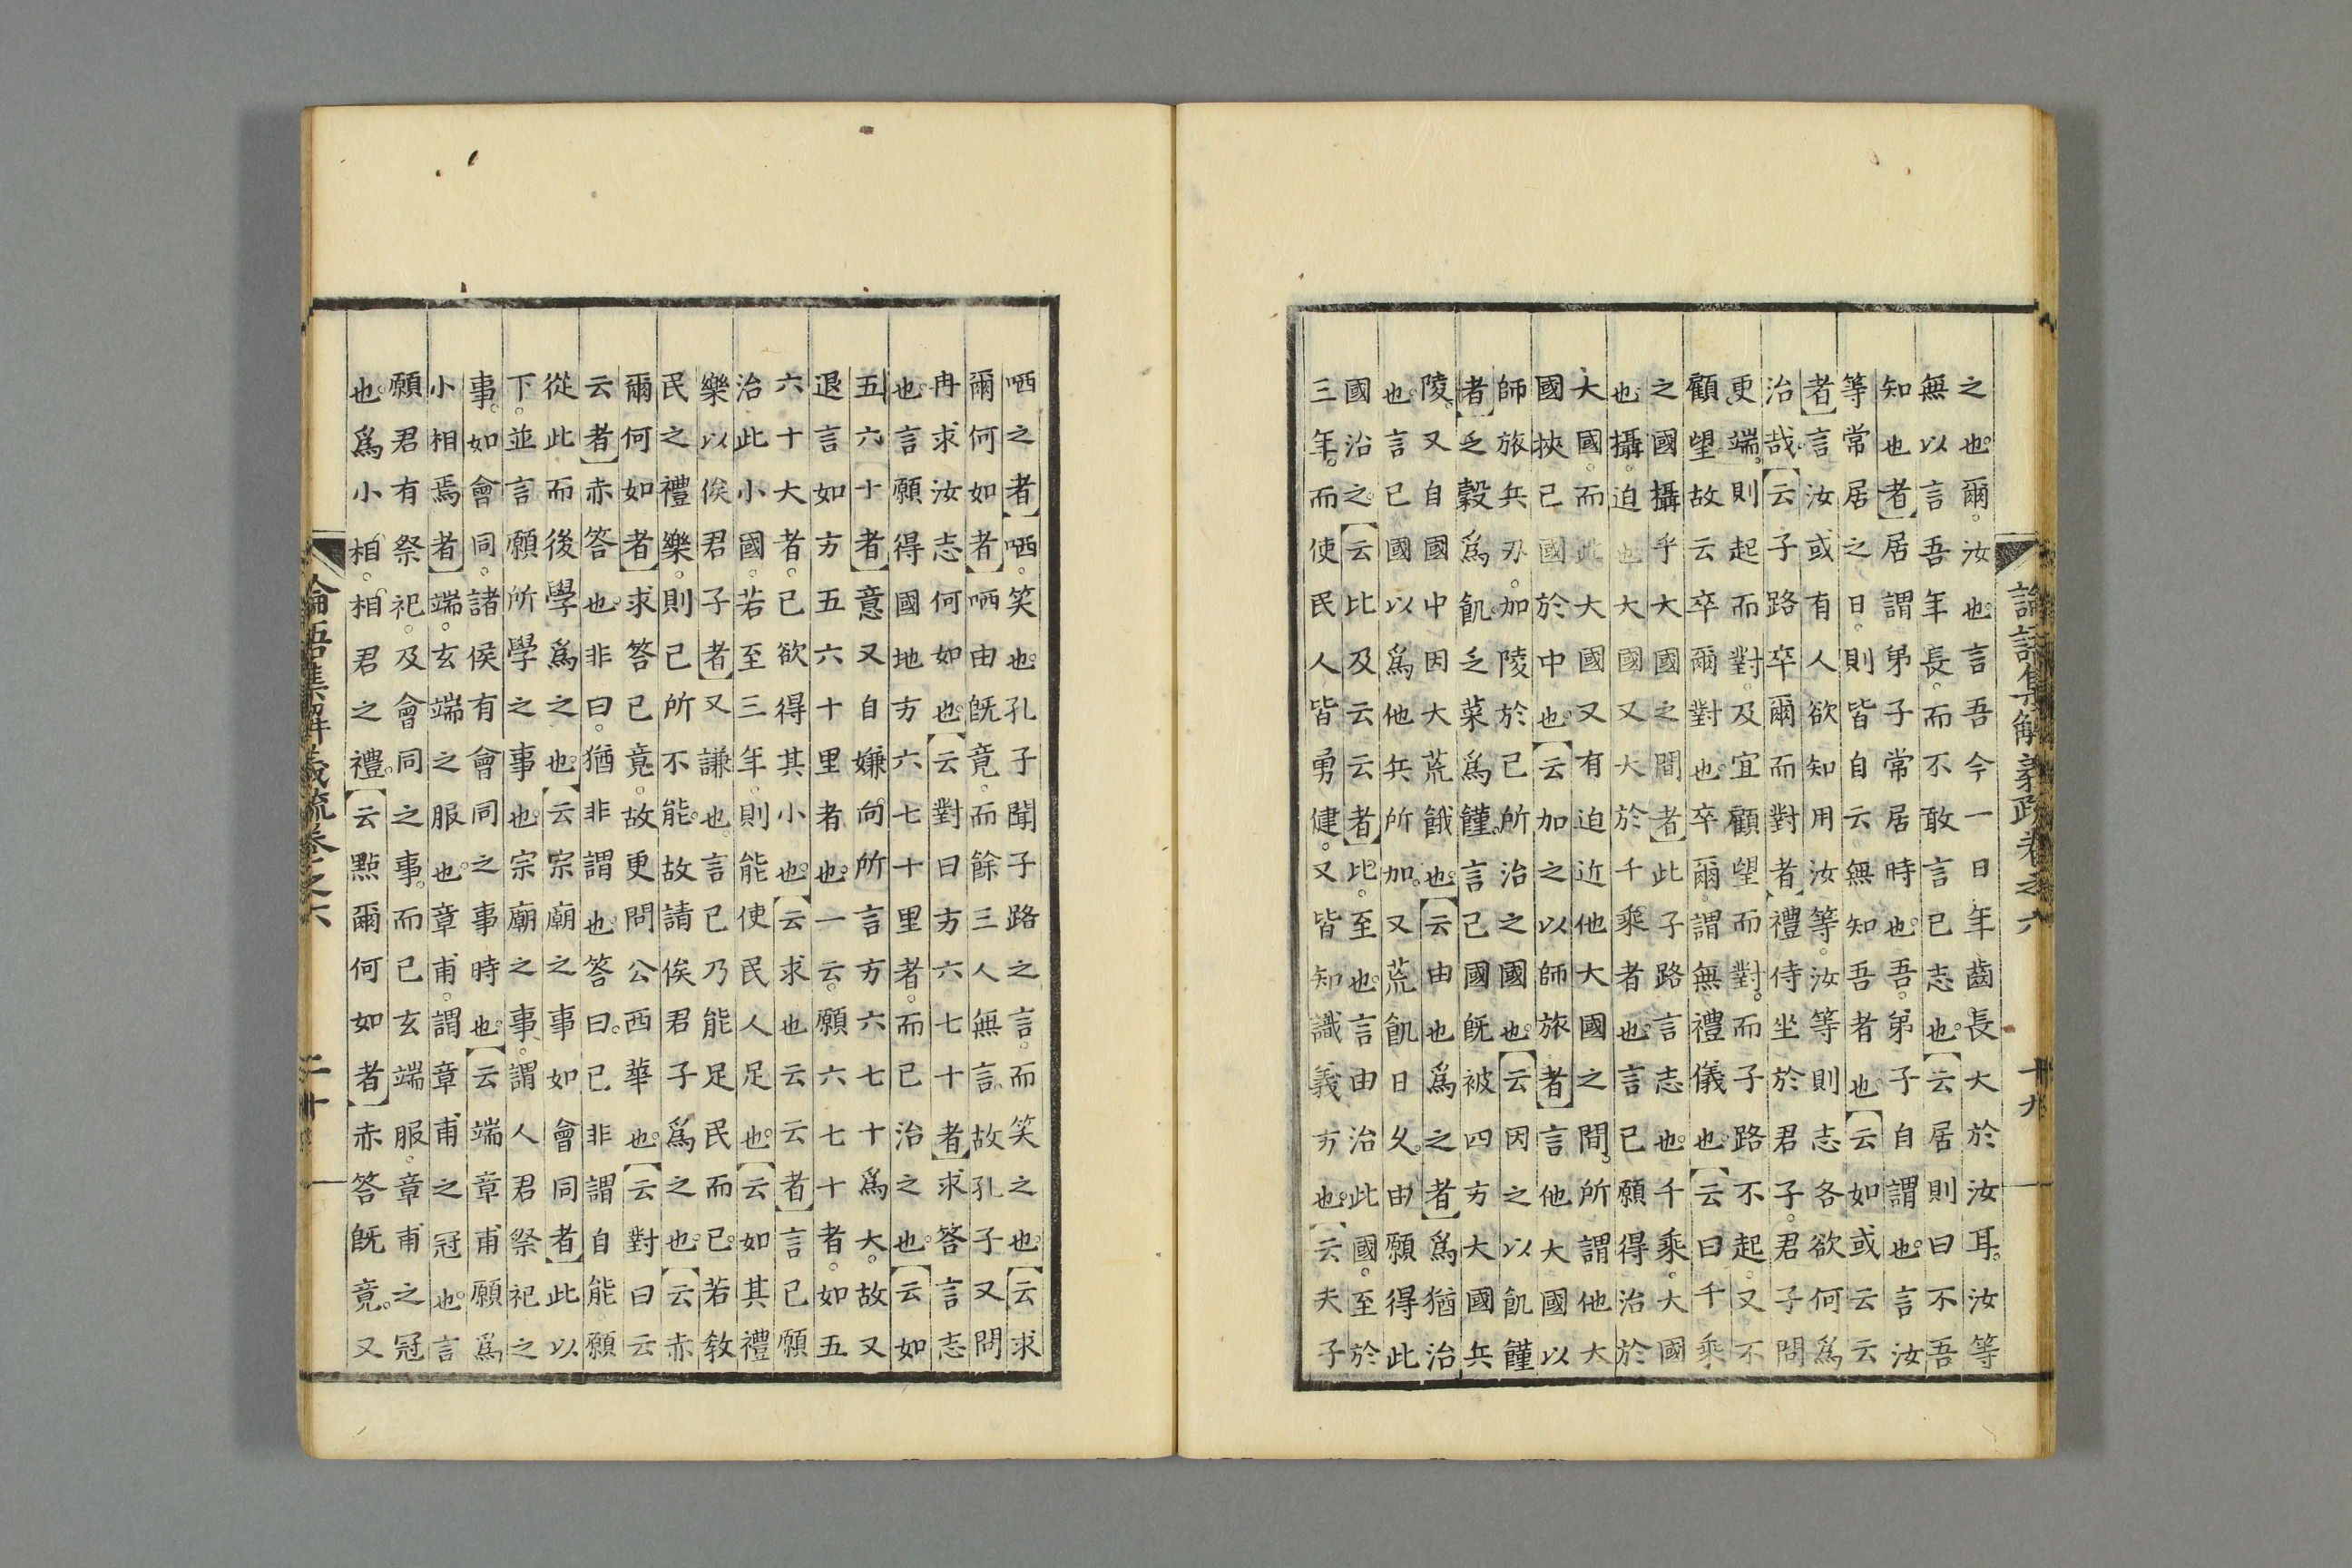 論語集解義疏卷之六　十九
之也。爾。汝也。言吾今一日年齒長大於汝耳。汝等
無以言吾年長。而不敢言己志也。【云居則曰不吾
知也者】居謂弟子常居時也。吾。弟子自謂也。言汝
等常居之日。則皆自云無知吾者也。【云如或云云
者】言汝或有人欲知用汝等。汝等則志各欲何爲
治哉。【云子路卒爾而對者】禮侍坐於君子。君子問
更端。則起而對。及宜顧望而對。而子路不起。又不
顧望。故云卒爾對也。卒爾。謂無禮儀也。【云曰千乘
之國攝乎大國之間者】此子路言志也。千乘。大國
也。攝。迫也。大國又大於千乘者也。言己願得治於
大國。而此大國又有迫近他大國之間。所謂他大
國挾己國於中也。【云加之以師旅者】言他大國以
師旅兵刃。加陵於己所治之國也。【云因之以飢饉
者】乏穀爲飢。乏菜爲饉。言己國既被四方大國兵
陵。又自國中因大荒餓也。【云由也爲之者】爲猶治
也。言己國以爲他兵所加。又荒飢日久。由願得此
國治之。【云比及云云者】比。至也。言由治此國。至於
三年。而使民人皆勇健。又皆知識義方也。【云夫子
哂之者】哂。笑也。孔子聞子路之言。而笑之也。【云求
爾何如者】哂由既竟。而餘三人無言。故孔子又問
冉求汝志何如也。【云對曰方六七十者】求答言志
也。言願得國地方六七十里者。而己治之也。【云如
五六十者】意又自嫌向所言方六七十爲大。故又
退言如方五六十里者也。一云。願六七十者。如五
六十大者。己欲得其小也。【云求也云云者】言己願
治此小國。若至三年。則能使民人足也。【云如其禮
樂以俟君子者】又謙也。言己乃能足民而已。若教
民之禮樂。則己所不能。故請俟君子爲之也。【云赤
爾何如者】求答已竟。故更問公西華也。【云對曰云
云者】赤答也。非曰。猶非謂也。答曰。己非謂自能願
從此而後學爲之也。【云宗廟之事如會同者】此以
下。並言願所學之事也。宗廟之事。謂人君祭祀之
事。如會同。諸侯有會同之事時也。【云端章甫願爲
小相焉者】端。玄端之服也。章甫。謂章甫之冠也。言
願君有祭祀。及會同之事。而己玄端服。章甫之冠
也。爲小相。相君之禮。【云點爾何如者】赤答既竟。又
論語集解義疏卷之六　二十